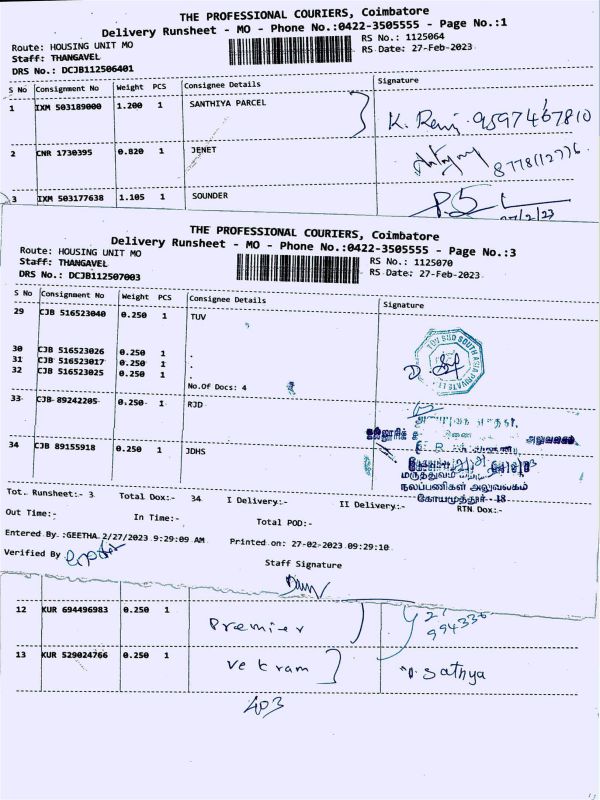 THE PROFESSIONAL COURIERS, Coimbatore
Delivery Runsheet - MO - Phone No.:0422-3505555 - Page No.:1
Route: HOUSING UNIT MO
RS No.: 1125064
Staff: THANGAVEL
RS Date: 27-Feb-2023
DRS No.: DCJB112506401
S No Consignment No Weight PCS Consignee Details Signature
1 IXM 503189000 1.200 1 SANTHIYA PARCEL
K. Ravi 9597467810
2 CNR 1730395 0.820 1 JENET
8778112776
3 IXM 503177638 1.105 1 SOUNDER
THE PROFESSIONAL COURIERS, Coimbatore
Delivery Runsheet - MO - Phone No.:0422-3505555 - Page No.:3
Route: HOUSING UNIT MO
RS No.: 1125070
Staff: THANGAVEL
RS Date: 27-Feb-2023
DRS No.: DCJB112507003
S No Consignment No Weight PCS Consignee Details Signature
29 CJB 516523040 0.250 1 TUV
TUV SUD SOUTH ASIA PRIVATE
30 CJB 516523026 0.250 1 .
31 CJB 516523017 0.250 1 .
32 CJB 516523025 0.250 1 .
No.Of Docs: 4
33 CJB 89242205 0.250 1 RJD
அலுவலகம்
34 CJB 89155918 0.250 1 JDHS
மருத்துவம்
நலப்பணிகள் அலுவலகம்
கோயமுத்தூர் - 18
Tot. Runsheet:- 3 Total Dox:- 34 I Delivery:- II Delivery:- RTN Dox:-
Out Time:- In Time:- Total POD:-
Entered By :GEETHA 2/27/2023 9:29:09 AM Printed on: 27-02-2023 09:29:10
Verified By
Staff Signature
12 KUR 694496983 0.250 1 Premier
13 KUR 529024766 0.250 1 Vekram Sathya
403